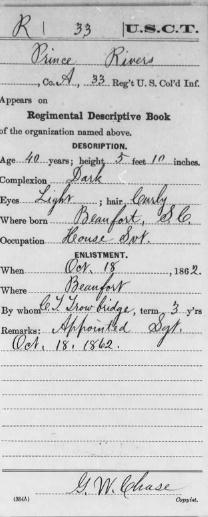 R | 33 | U.S.C.T.
Prince Rivers
, Co. A, 33 Reg't U. S. Col'd Inf.
Appears on
Regimental Descriptive Book
of the organization named above.
DESCRIPTION.
Age 40 years; height, 5 feet 10 inches.
Complexion Dark
Eyes Light ; hair Curly
Where born Beaufort, S.C.
Occupation House Svt.
ENLISTMENT.
When Oct. 18 , 1862.
Where Beaufort
By whom C. T. Trowbridge, term 3 y'rs
Remarks: Appointed Sgt.
Oct. 18, 1862.
G. W. Chase
(384A) Copyist.